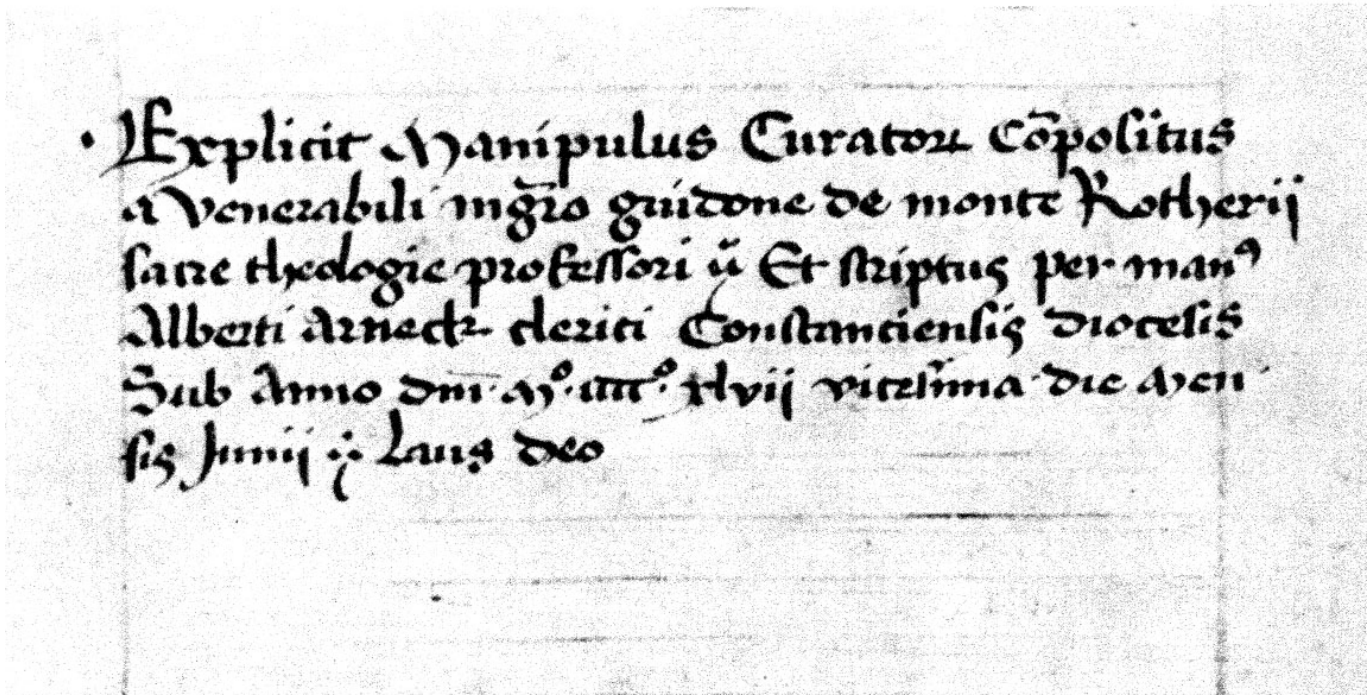 Explicit Manipulus Curatorꝝ Cōpositus
a Venerabili mgr̄o guidone de monte Rotherii
sacre theologie professori Et scriptus per manꝰ
Alberti clerici Constanciensis diocesis
Sub Anno dnī Mº. iiiiº. xlvii vicesīma die Men
sis Junii Laus deo